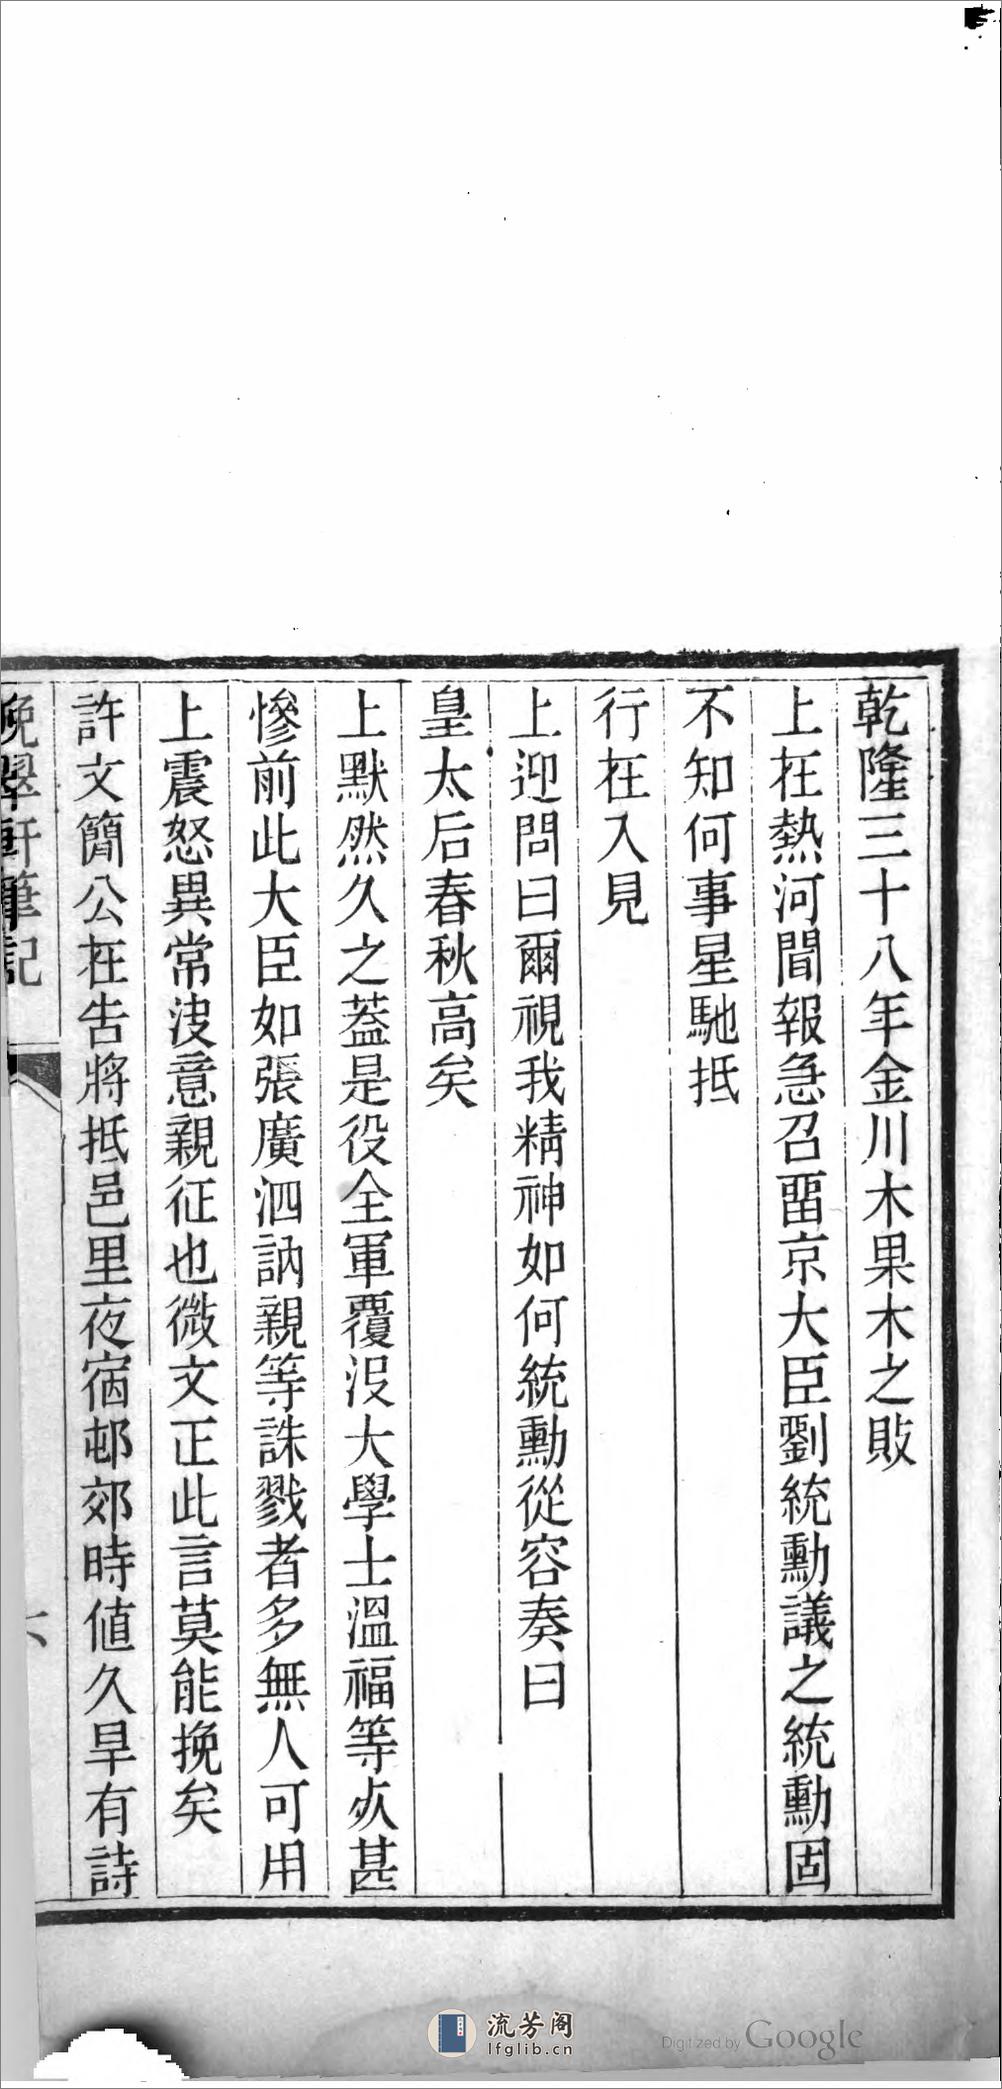 乾隆三十八年金川木果木之敗
上在熱河聞報急召畱京大臣劉統勳議之統勳固
不知何事星馳抵
行在入見
上迎問曰爾視我精神如何統勳從容奏曰
皇太后春秋高矣
上默然久之葢是役全軍覆沒大學士溫福等死甚
慘前此大臣如張廣泗訥親等誅戮者多無人可用
上震怒異常决意親征也微文正此言莫能挽矣
許文簡公在告將抵邑里夜宿邨郊時値久旱有詩
晚翠軒筆記
六
流芳阁
lfglib.cn
Digitized by Google